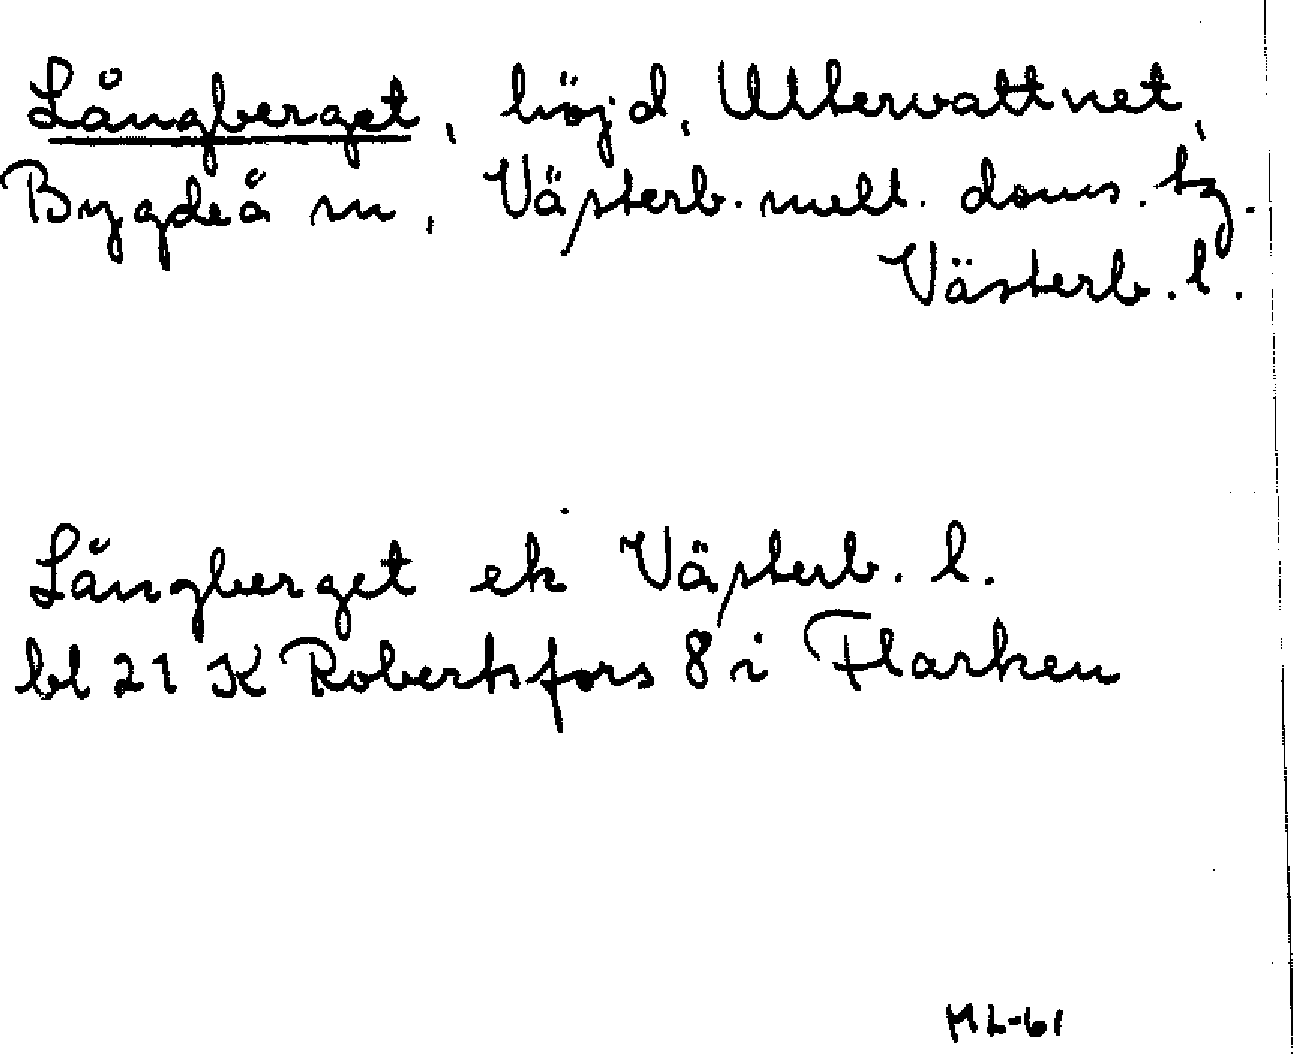 Långberget, höjd, Ullervattnet,
Bygdeå sn, Västerb. mell. doms. tg.
Västerb. l.
Långberget ek Västerb. l.
bl 21 K Robertsfors 8 i Flarken
ML-61